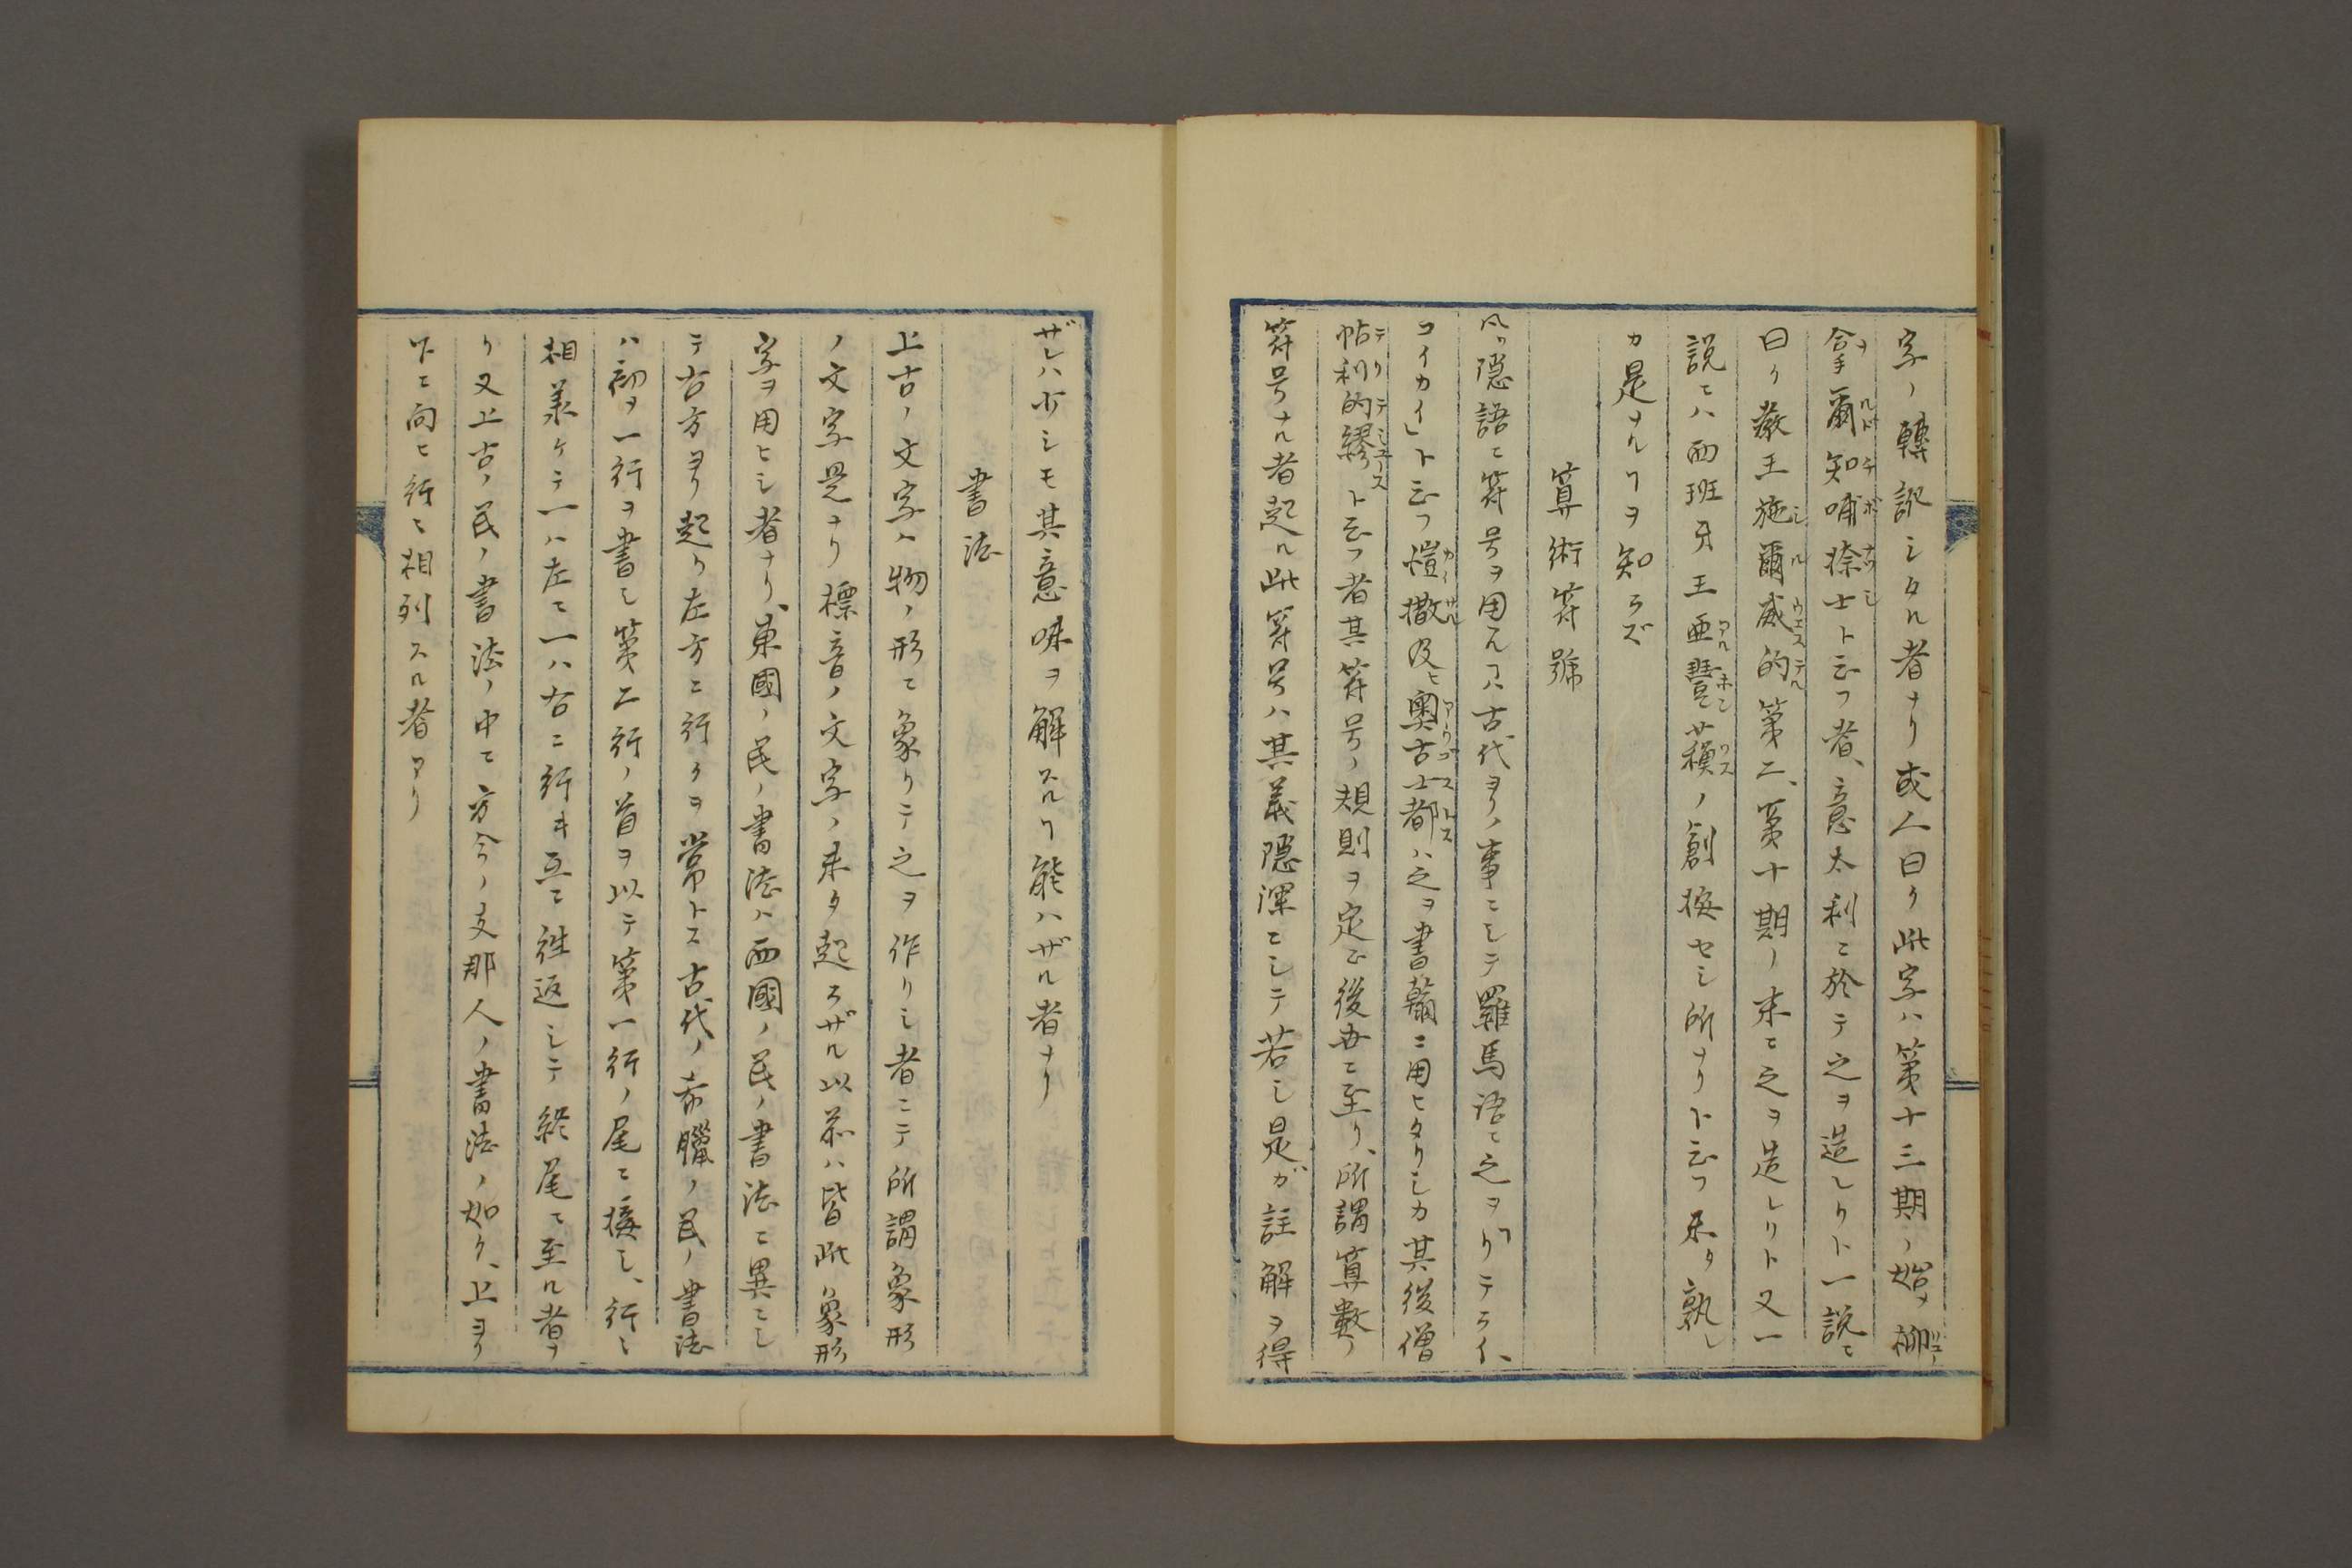 字ノ轉訛シタル者ナリ或人曰ク此字ハ第十三期ノ始メ柳
拿爾知哺捺士ト云フ者、意太利ニ於テ之ヲ造レリト一説ニ
曰ク教王施爾威的第二、第十期ノ末ニ之ヲ造レリト又一
説ニハ西班牙王亜豐薐ノ創換セシ所ナリト云フ未タ孰レ
カ是ナルヿヲ知ラズ
算術符號
凡ソ隠語ニ符号ヲ用ユルハ古代ヨリノ事ニシテ羅馬語ニ之ヲ「リテライ、
コイカイ」ト云フ愷撒及ヒ奥古士都ハ之ヲ書翰ニ用ヒタリシカ其後僧
帖利的繆ト云フ者其符号ノ規則ヲ定ム後世ニ至リ、所謂算數ノ
符号ナル者起ル此符号ハ其義隠渾ニシテ若シ是ガ註解ヲ得
ザレハ少シモ其意味ヲ解スルヿ能ハザル者ナリ
書法
上古ノ文字ハ物ノ形ニ象リテ之ヲ作リシ者ニテ所謂象形
ノ文字是ナリ標音ノ文字ノ未タ起ラザル以前ハ皆此象形
字ヲ用ヒシ者ナリ、東國ノ民ノ書法ハ西國ノ民ノ書法ニ異ニシ
テ右方ヨリ起リ左方ニ行クヲ常トス古代ノ希臘ノ民ノ書法
ハ初メ一行ヲ書シ第二行ノ首ヲ以テ第一行ノ尾ニ接シ、行々
相兼ケテ一ハ左ニ一ハ右ニ行キ互ニ徃返シテ終尾ニ至ル者ナ
リ又上古ノ民ノ書法ノ中ニ方今ノ支那人ノ書法ノ如ク、上ヨリ
下ニ向ヒ行ニ相列スル者アリ